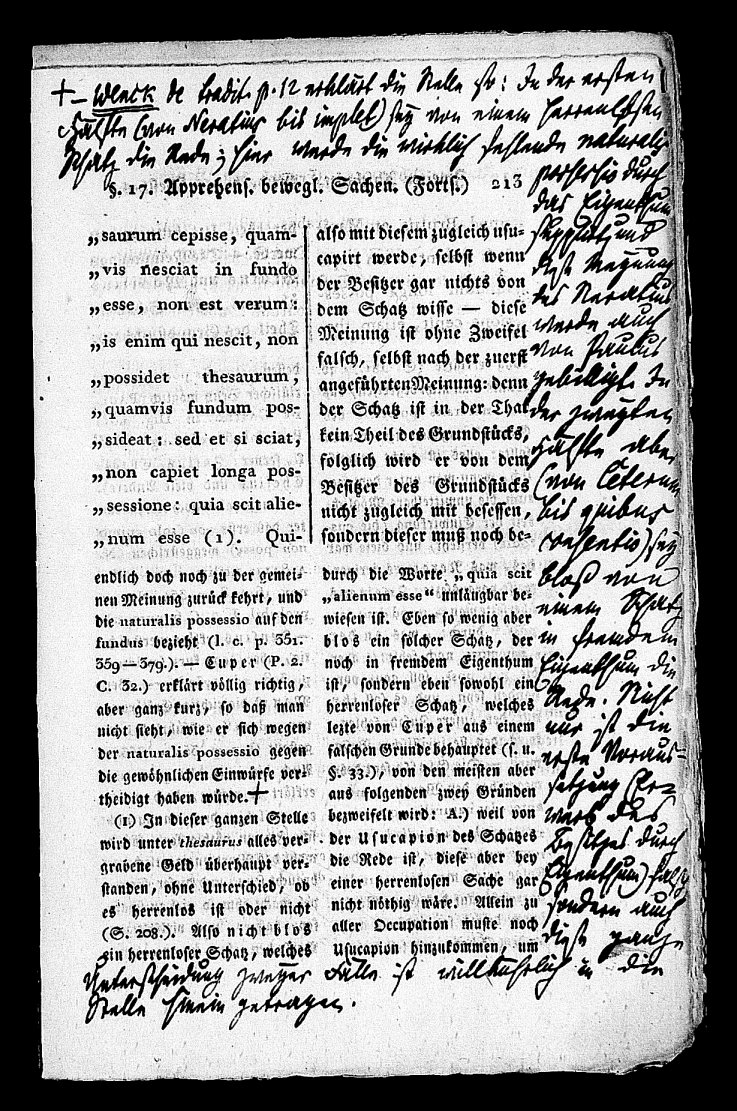 + – Wlerk de tradit. p. 12 erklärt die Stelle so: In der ersten
Hälfte (von Neratius bis implet) sey von einem herrenlosen
Schatz die Rede; hier werde die wirklich fehlende naturalis
possessio durch
das Eigenthum
supplirt, und
diese Meynung
des Neratius
werde auch
von Paulus
gebilligt. In
der zweyten
Hälfte aber
(von Ceterum
bis quibus
consentio) sey
bloß von
einem Schatz
in fremdem
Eigenthum die
Rede. Nicht
nur ist die
erste Voraus-
setzung (Er-
werb des
Besitzes durch
Eigenthum) falsch
sondern auch
diese ganze
Unterscheidung zweyer Fälle ist willkührlich in die
Stelle hinein getragen.
§. 17. Apprehens. bewegl. Sachen. (Forts.) 213
„saurum cepisse, quam-
„vis nesciat in fundo
„esse, non est verum:
„is enim qui nescit, non
„possidet thesaurum,
„quamvis fundum pos-
„sideat: sed et si sciat,
„non capiet longa pos-
„sessione: quia scit alie-
„num esse (1). Qui-
also mit diesem zugleich usu-
capirt werde, selbst wenn
der Besitzer gar nichts von
dem Schatz wisse — diese
Meinung ist ohne Zweifel
falsch, selbst nach der zuerst
angeführten Meinung: denn
der Schatz ist in der That
kein Theil des Grundstücks,
folglich wird er von dem
Besitzer des Grundstücks
nicht zugleich mit besessen,
sondern dieser muß noch be-
endlich doch noch zu der gemei-
nen Meinung zurück kehrt, und
die naturalis possessio auf den
fundus bezieht (l. c. p. 351.
359—379.). — Cuper (P. 2.
C. 32.) erklärt völlig richtig,
aber ganz kurz, so daß man
nicht sieht, wie er sich wegen
der naturalis possessio gegen
die gewöhnlichen Einwürfe ver-
theidigt haben würde. +
(1) In dieser ganzen Stelle
wird unter thesaurus alles ver-
grabene Geld überhaupt ver-
standen, ohne Unterschied, ob
es herrenlos ist oder nicht
(S. 208.). Also nicht blos
ein herrenloser Schatz, welches
durch die Worte „quia scit
„alienum esse“ unläugbar be-
wiesen ist. Eben so wenig aber
blos ein solcher Schatz, der
noch in fremdem Eigenthum
ist, sondern eben sowohl ein
herrenloser Schatz, welches
lezte von Cuper aus einem
falschen Grunde behauptet (s. u.
§. 33.), von den meisten aber
aus folgenden zwey Gründen
bezweifelt wird: A.) weil von
der Usucapion des Schatzes
die Rede ist, diese aber bey
einer herrenlosen Sache gar
nicht nöthig wäre. Allein zu
aller Occupation muste noch
Usucapion hinzukommen, um